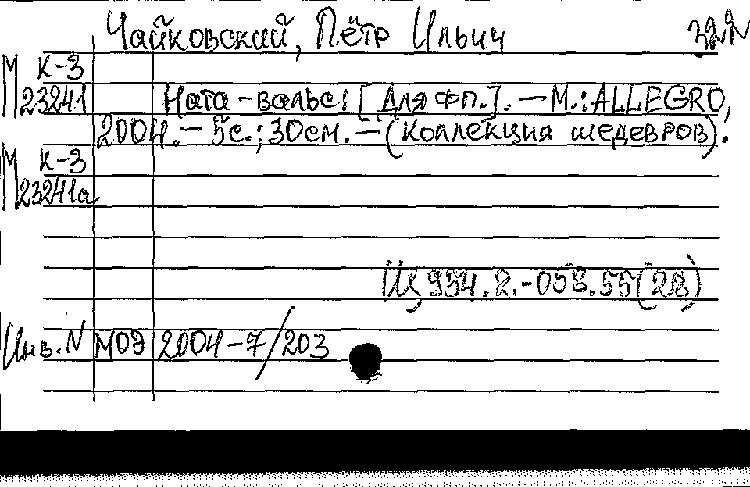 Чайковский, Пётр Ильич
М К-3
23241
Ната-вальс: [Для фп.]. — М.: ALLEGRO,
2004. — 5с.; 30см. — (Коллекция шедевров).
М К-3
23241а
Щ 954.2.-058.55(28)
Инв. N МОЭ 2004-7/203